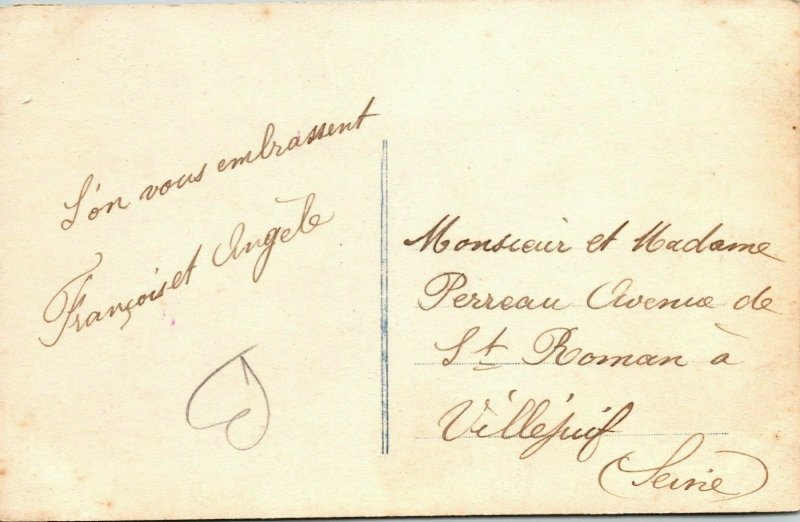 L'on vous embrassent
François et Angèle
Monsieur et Madame
Perreau Avenue de
St Roman à
Villejuif
(Seine)